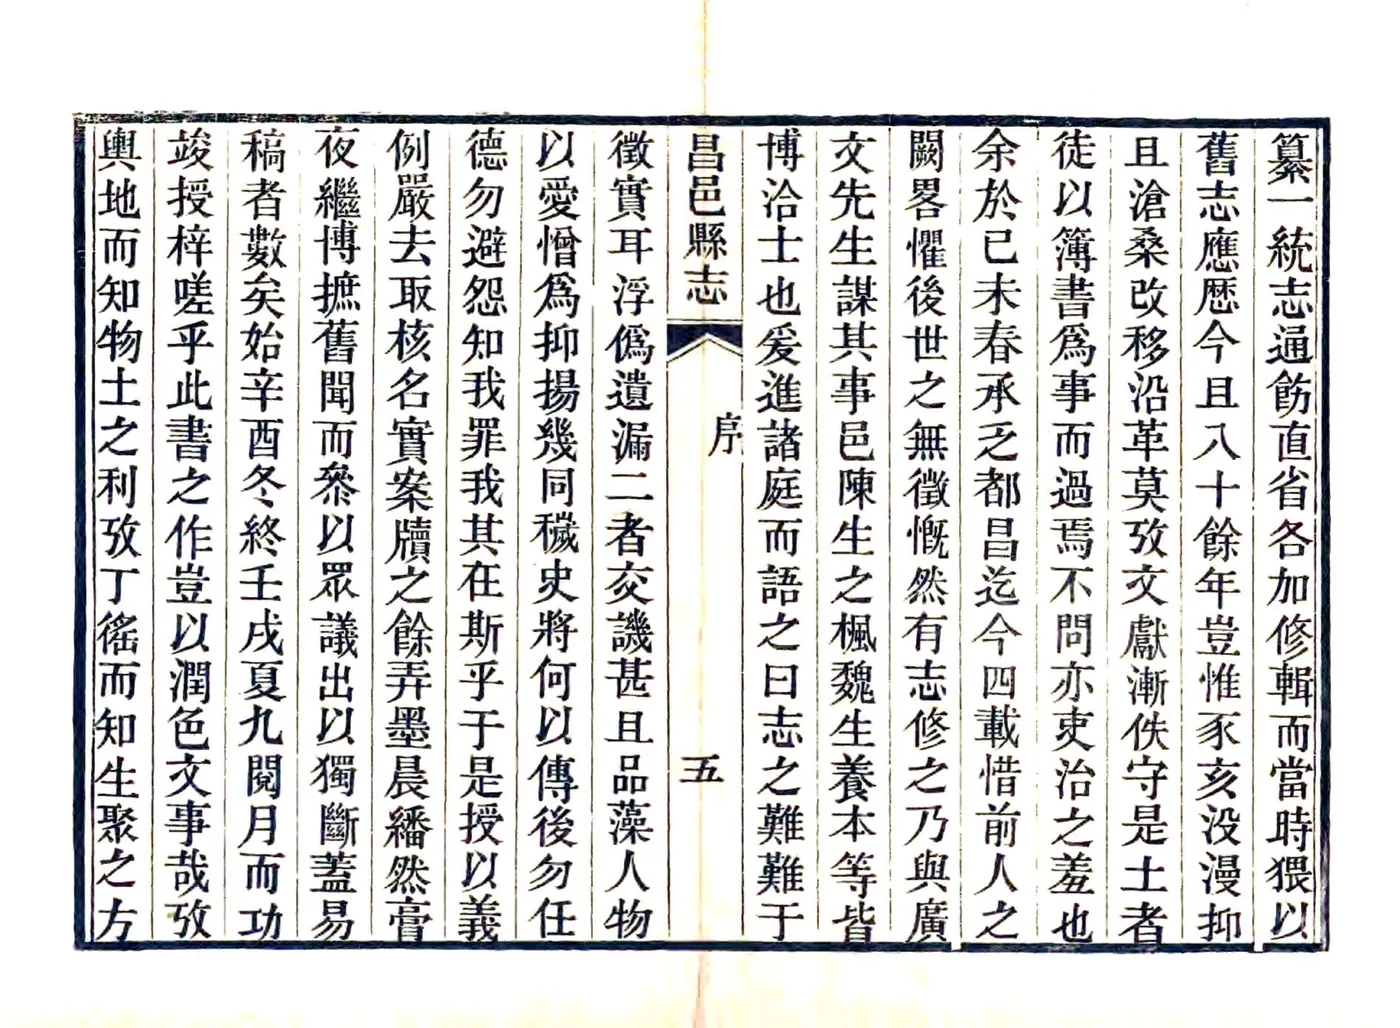 纂一統志通飭直省各加修輯而當時猥以
舊志應歴今且八十餘年豈惟豕亥没漫抑
且滄桑改移沿革莫攷文獻漸佚守是土者
徒以簿書爲事而過焉不問亦吏治之羞也
余於已未春承乏都昌迄今四載惜前人之
闕畧懼後世之無徵慨然有志修之乃與廣
文先生謀其事邑陳生之楓魏生養本等皆
博洽士也爰進諸庭而語之曰志之難難于
昌邑縣志
序
五
徵實耳浮僞遺漏二者交譏甚且品藻人物
以愛憎爲抑揚幾同穢史將何以傳後勿任
德勿避怨知我罪我其在斯乎于是授以義
例嚴去取核名實案牘之餘弄墨晨繙然膏
夜繼博摭舊聞而叅以眾議出以獨斷蓋易
稿者數矣始辛酉冬終壬戌夏九閱月而功
竣授梓嗟乎此書之作豈以潤色文事哉攷
輿地而知物土之利攷丁徭而知生聚之方